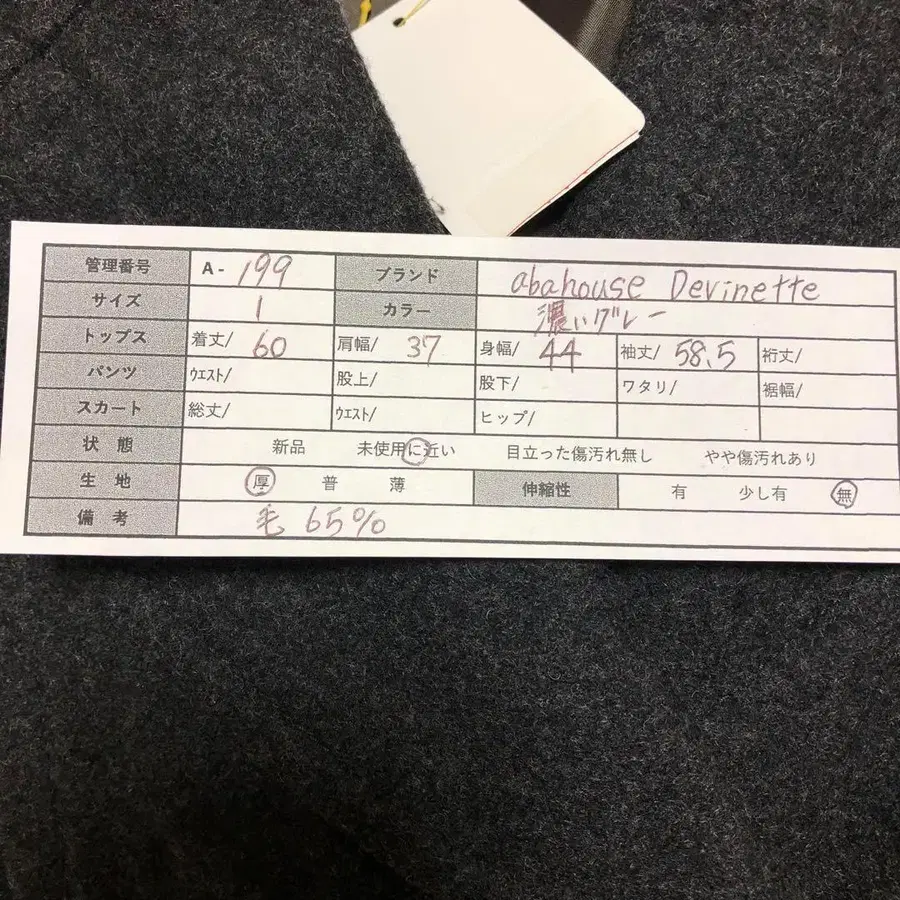 管理番号 A- 199 ブランド abahouse Devinette
サイズ 1 カラー 濃いグレー
トップス 着丈/ 60 肩幅/ 37 身幅/ 44 袖丈/ 58.5 裄丈/
パンツ ウエスト/ 股上/ 股下/ ワタリ/ 裾幅/
スカート 総丈/ ウエスト/ ヒップ/
状態 新品 未使用に近い 目立った傷汚れ無し やや傷汚れあり
生地 厚 普 薄 伸縮性 有 少し有 無
備考 毛 65%